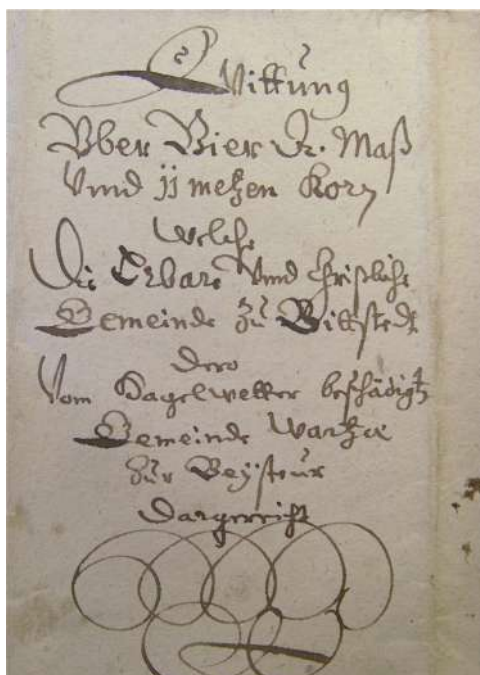 Qvittung
Vber Vier Er. Maß
Vnnd ij metzen Korn
welche
Die Erbare Vnnd Christliche
Gemeinde zu Bittstedt
dero
Vom Hagelwetter beschädigt
Gemeinde Wartza
zur Beysteur
Dargereicht